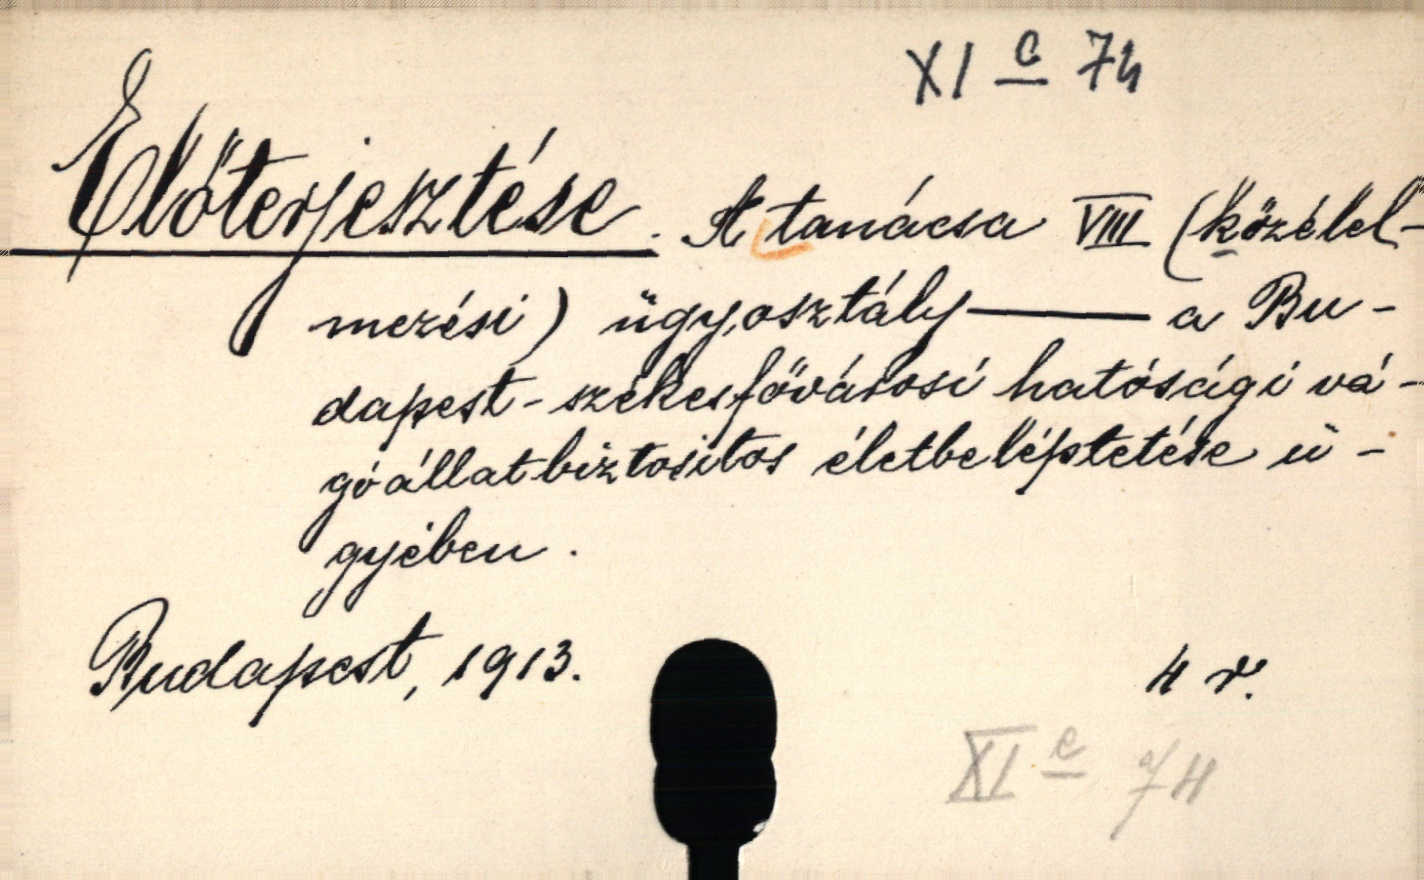 XI c 74
Előterjesztése. A tanácsa VIII (közélel-
mezési) ügyosztály — a Bu-
dapest-székesfővárosi hatósági vá-
góállatbiztositos életbeléptetése ü-
gyében.
Budapest, 1913. 4 r.
XI c 74